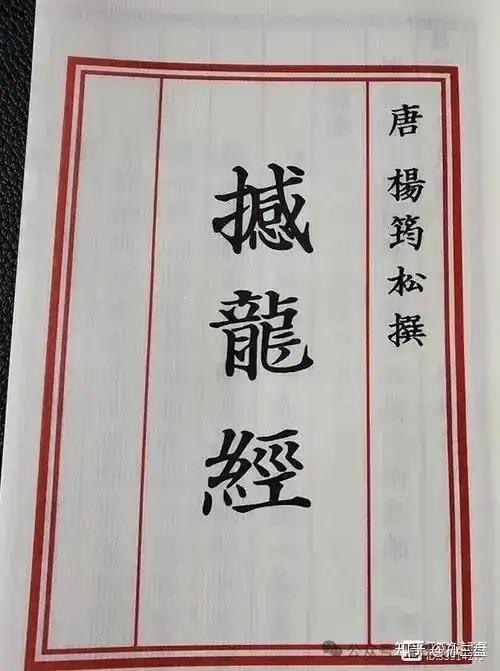 唐 楊筠松撰
撼龍經
知乎